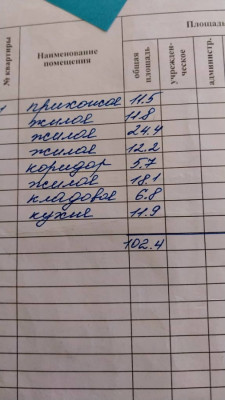 Площадь
№ квартиры
Наименование помещения
общая площадь
учрежден-
ческое
администр.
1
прихожая 11.5
жилая 11.8
жилая 24.4
жилая 12.2
коридор 5.7
жилая 18.1
кладовая 6.8
кухня 11.9
102.4